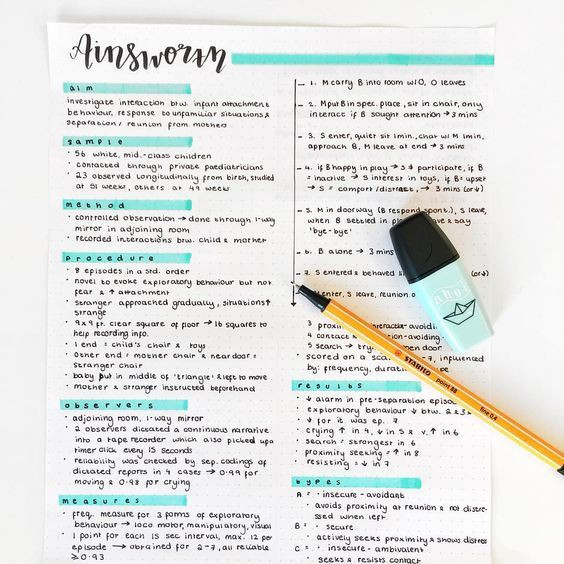 AINSWORTH
aim
investigate interaction btw. infant attachment
behaviour, response to unfamiliar situations &
separation/reunion from mothers
sample
• 56 white, mid-class children
• contacted through private paediatricians
• 23 observed longitudinally from birth, studied
at 51 week, others at 49 week
method
• controlled observation → done through 1-way
mirror in adjoining room
• recorded interactions btw. child & mother
procedure
• 8 episodes in a std. order
• novel to evoke exploratory behaviour but not
fear & ↑ attachment
• stranger approached gradually, situations ↑
strange
• 9x9 ft. clear square of floor → 16 squares to
help recording info.
• 1 end = child's chair & toys
• other end = mother chair & near door =
stranger chair
• baby put in middle of 'triangle' & left to move
• mother & stranger instructed beforehand
observers
• adjoining room, 1-way mirror
• 2 observers dictated a continuous narrative
into a tape recorder which also picked up a
timer click every 15 seconds
• reliability was checked by sep. codings of
dictated reports in 4 cases → 0.99 for
moving & 0.98 for crying
measures
• freq. measure for 3 forms of exploratory
behaviour → loco motor, manipulatory, visual
• 1 point for each 15 sec interval, max. 12 per
episode → obtained for 2-7, all reliable
≥ 0.93
1. M carry B into room w/ O, O leaves
2. M put B in spec. place, sit in chair, only
interact if B sought attention → 3 mins
3. S enter, quiet sit 1 min., chat w/ M 1 min,
approach B, M leave at end → 3 mins
4. if B happy in play → S ≠ participate, if B
= inactive → S interest in toys, if B = upset
→ S = comfort/distract, → 3 mins (or ↓)
5. M in doorway (B respond spont.), S leave,
when B settled in pla & say
'bye-bye'
6. B alone → 3 mins
7. S entered & behaved (or ↓)
enter, S leave, reunion o
3 proxim interaction-avoiding
4 contact & -avoiding
5 search → try open door
• scored on a sca -7, influenced
by: frequency, duratio pe
results
• ↓ alarm in pre-separation episod
• exploratory behaviour ↓ btw. 2 & 3
• ↓ for it was ep. 7
• crying ↑ in 4, ↓ in 5 & v. ↑ in 6
• search = strongest in 6
• proximity seeking = ↑ in 8
• resisting = ↓ in 7
types
A = • insecure-avoidant
• avoids proximity at reunion & not distre-
ssed when left
B = • secure
• actively seeks proximity & shows distress
C = • insecure-ambivalent
• seeks & resists contact
STABILO
point 88
fine 0,4